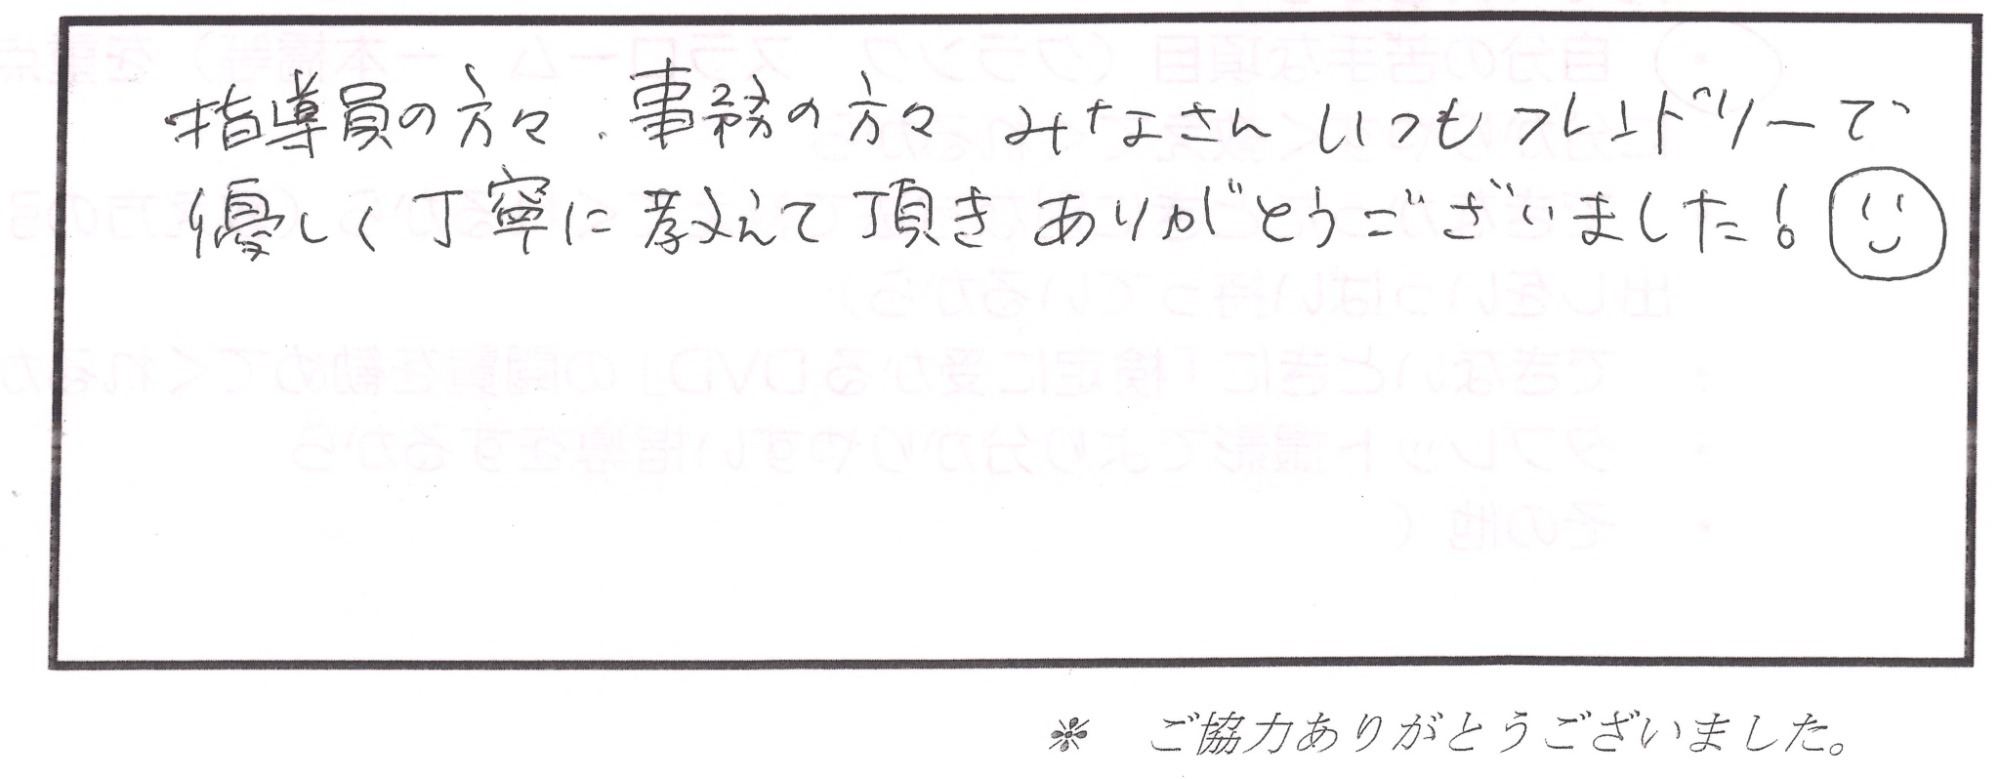 指導員の方々、事務の方々 みなさん いつもフレンドリーで
優しく丁寧に教えて頂きありがとうございました!
※ ご協力ありがとうございました。